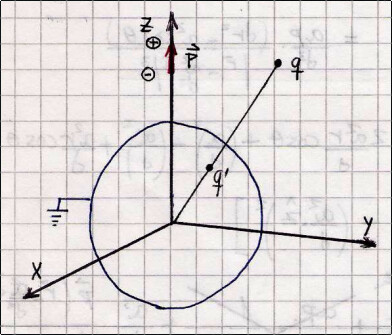 Z
⊕
⊖
p⃗
q
q'
Y
X